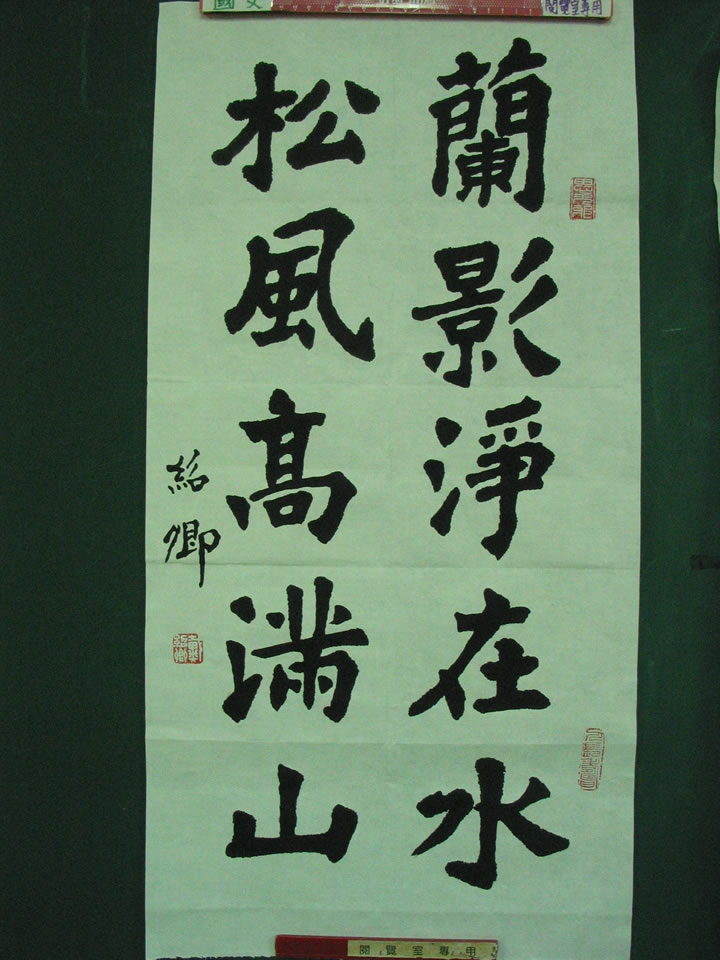 國文
閱覽室專用
蘭影淨在水
松風高滿山
紹卿
閱覽室專用